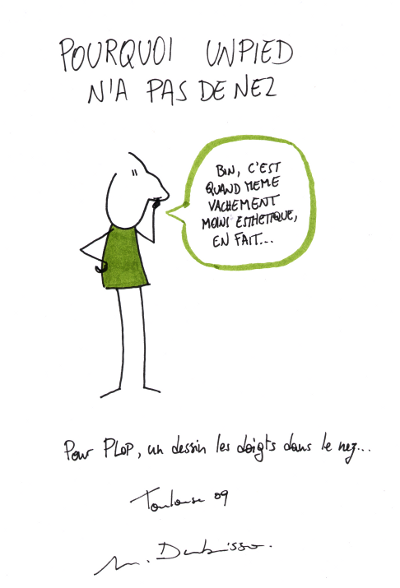 POURQUOI UN PIED
N'A PAS DE NEZ
BIN, C'EST
QUAND MEME
VACHEMENT
MOINS ESTHETIQUE,
EN FAIT...
Pour PLOP, un dessin les doigts dans le nez...
Toulouse 09